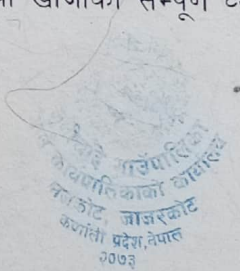 खाजाको सम्पूर्ण
गाउँपालिका
कार्यपालिकाको कार्यालय
मजकोट, जाजरकोट
कर्णाली प्रदेश, नेपाल
२०७३